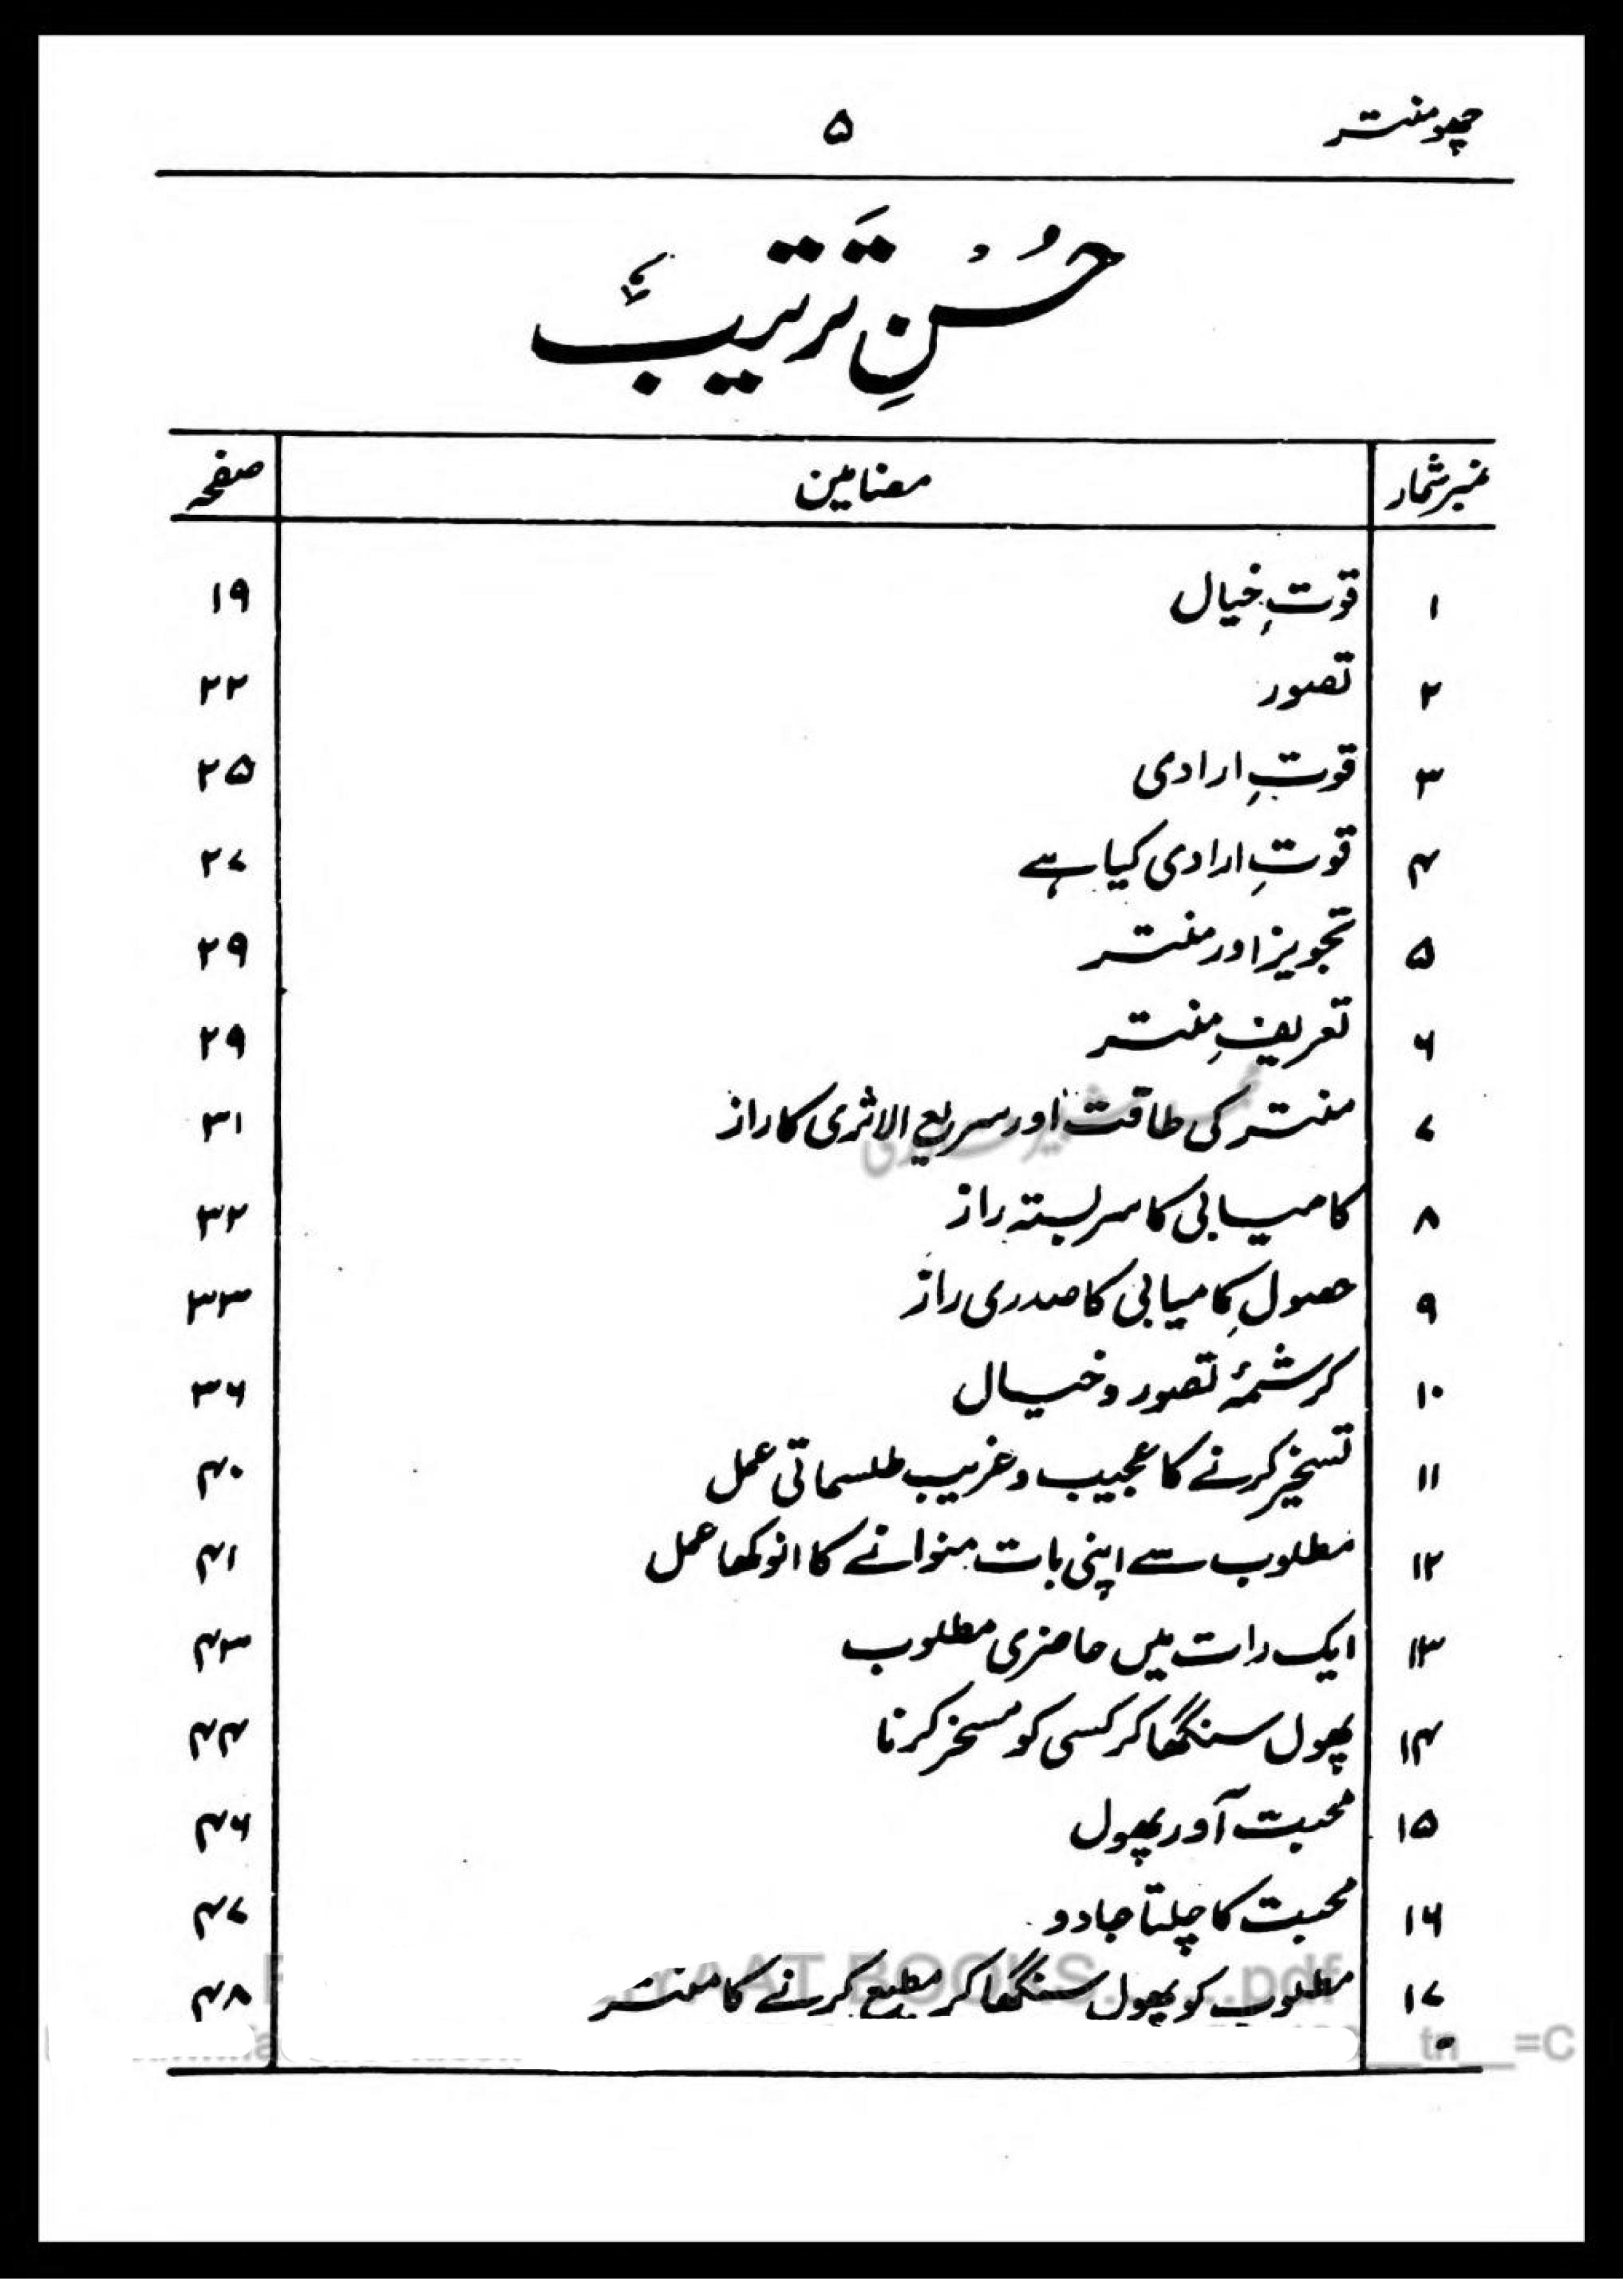 چھومنتر ۵
حُسنِ تَرتیب
نمبرشمار مضامین صفحہ
۱ قوتِ خیال ۱۹
۲ تصور ۲۲
۳ قوتِ ارادی ۲۵
۴ قوتِ ارادی کیا ہے ۲۷
۵ تجویز اور منتر ۲۹
۶ تعریفِ منتر ۲۹
۷ منتر کی طاقت اور سریع الاثری کا راز ۳۱
۸ کامیابی کا سربستہ راز ۳۲
۹ حصولِ کامیابی کا صدری راز ۳۳
۱۰ کرشمۂ تصور و خیال ۳۶
۱۱ تسخیر کرنے کا عجیب و غریب طلسماتی عمل ۴۰
۱۲ مطلوب سے اپنی بات منوانے کا انوکھا عمل ۴۱
۱۳ ایک رات میں حاضری مطلوب ۴۳
۱۴ پھول سنگھا کر کسی کو مسخر کرنا ۴۴
۱۵ محبت آور پھول ۴۶
۱۶ محبت کا چلتا جادو ۴۷
۱۷ مطلوب کو پھول سنگھا کر مطیع کرنے کا منتر ۴۸
BOOKS.......pdf
__tn__=C